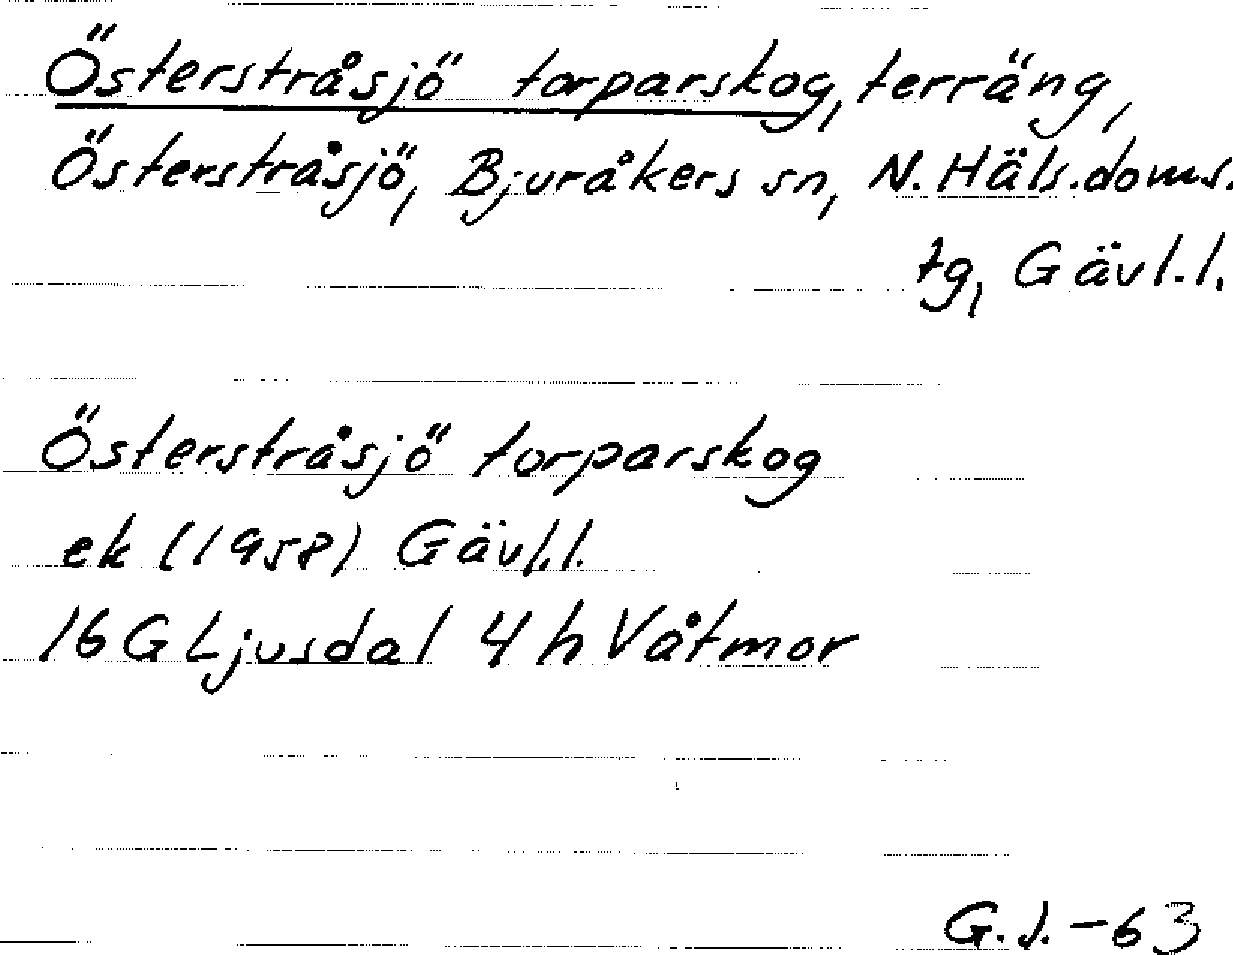 Österstråsjö torparskog, terräng,
Österstråsjö, Bjuråkers sn, N. Häls. doms.
tg, Gävl. l.
Österstråsjö torparskog
ek (1958) Gävl. l.
16 G Ljusdal 4 h Våtmor
G. J. -63